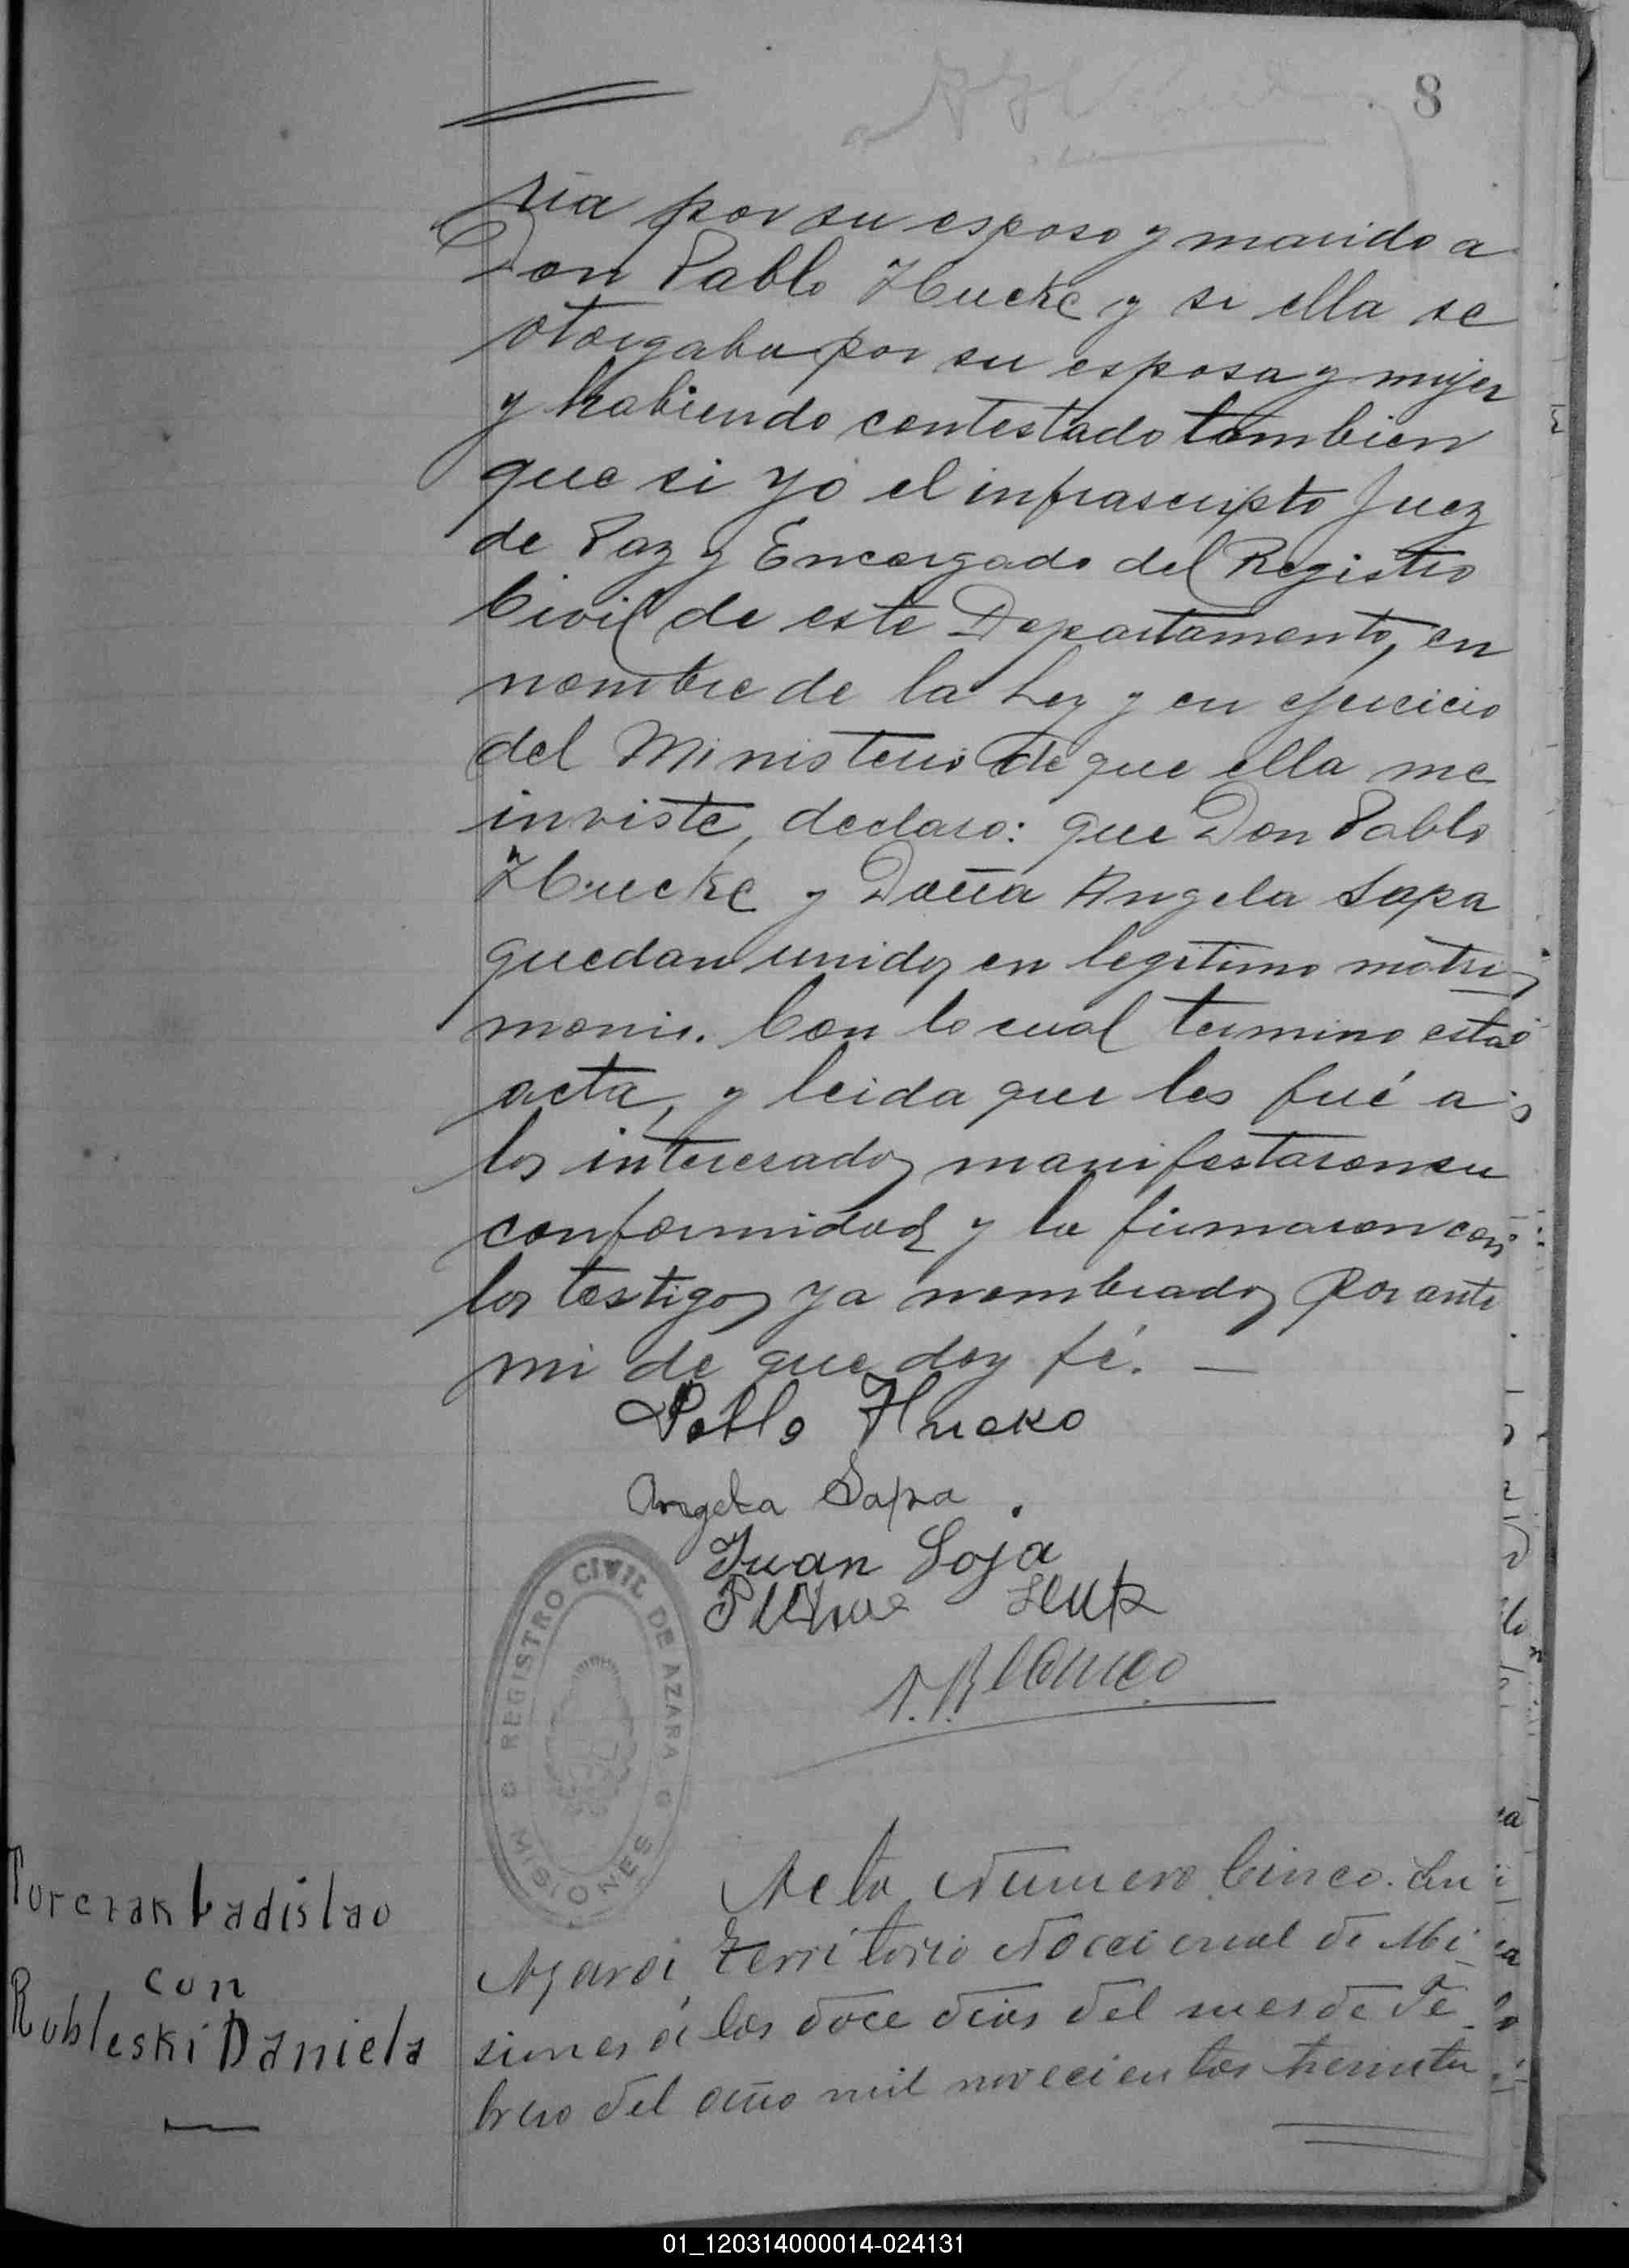 8
ria por su esposo y marido a
Don Pablo Hucke y si ella se
otorgaba por su esposa y mujer
y habiendo contestado tambien
que si yo el infrascripto Juez
de Paz y Encargado del Registro
Civil de este Departamento, en
nombre de la Ley y en ejercicio
del Ministerio de que ella me
inviste, declaro: que Don Pablo
Hucke y Doña Angela Sapa
quedan unidos en legitimo matri-
monio. Con lo cual termino esta
acta, y leida que les fué a
los interesados manifestaron su
conformidad y la firmaron con
los testigos ya nombrados por ante
mi de que doy fé. —
Pablo Hucko
Angela Sapa
Juan Soja
REGISTRO CIVIL DE AZARA
MISIONES
Acta Número Cinco. En
Azara, Territorio Nacional de Mi-
siones á los doce dias del mes de Fe-
brero del año mil novecientos treinta
Torczak Ladislao
con
Robleski Daniela
01_120314000014-024131